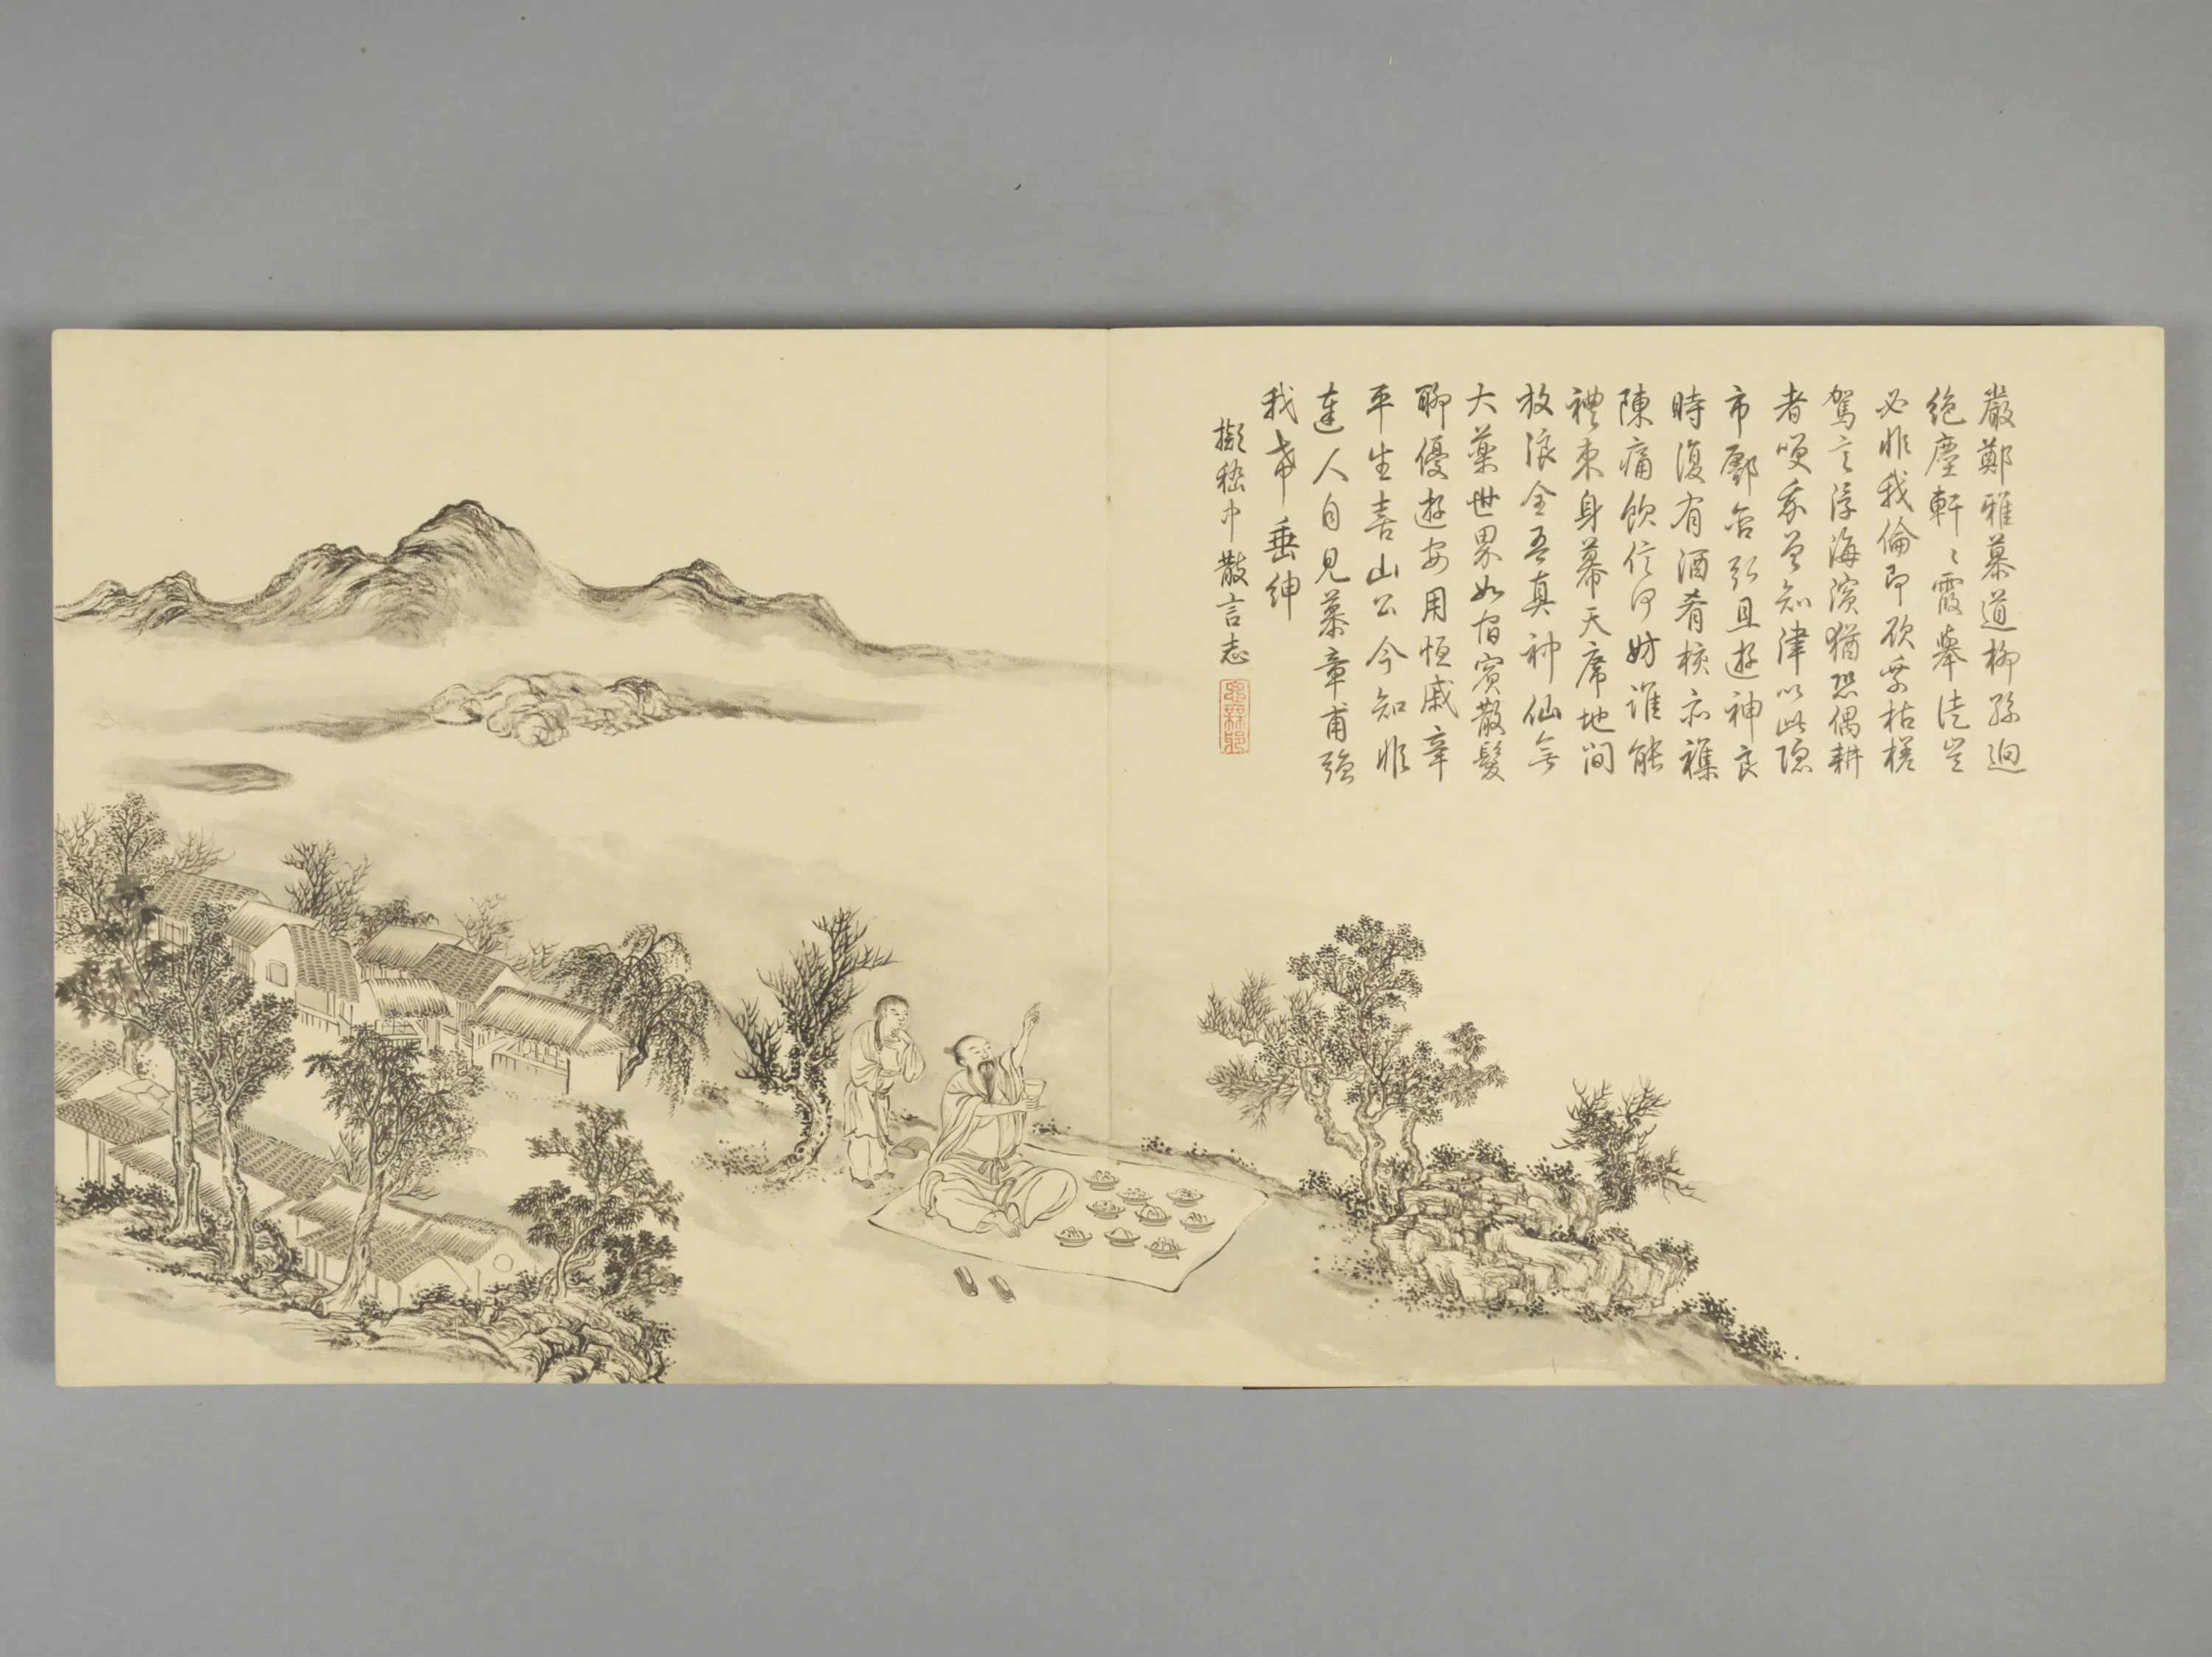 嚴鄭雅慕道柳孫迥
絶塵軒〻霞舉徒豈
必非我倫即欲乘枯槎
駕言浮海濱猶恐偶耕
者哂我曾知津以此隱
市鄽含
且遊神良
時復有酒肴核亦襍
陳痛飲信何妨誰能
禮束身幕天席地間
放浪全吾真神仙無
大藥世界如宿賓散髮
聊優遊安用恒戚辛
平生喜山公今知非
達人自見慕章甫強
我帶垂紳
擬嵇中散言志
思無邪